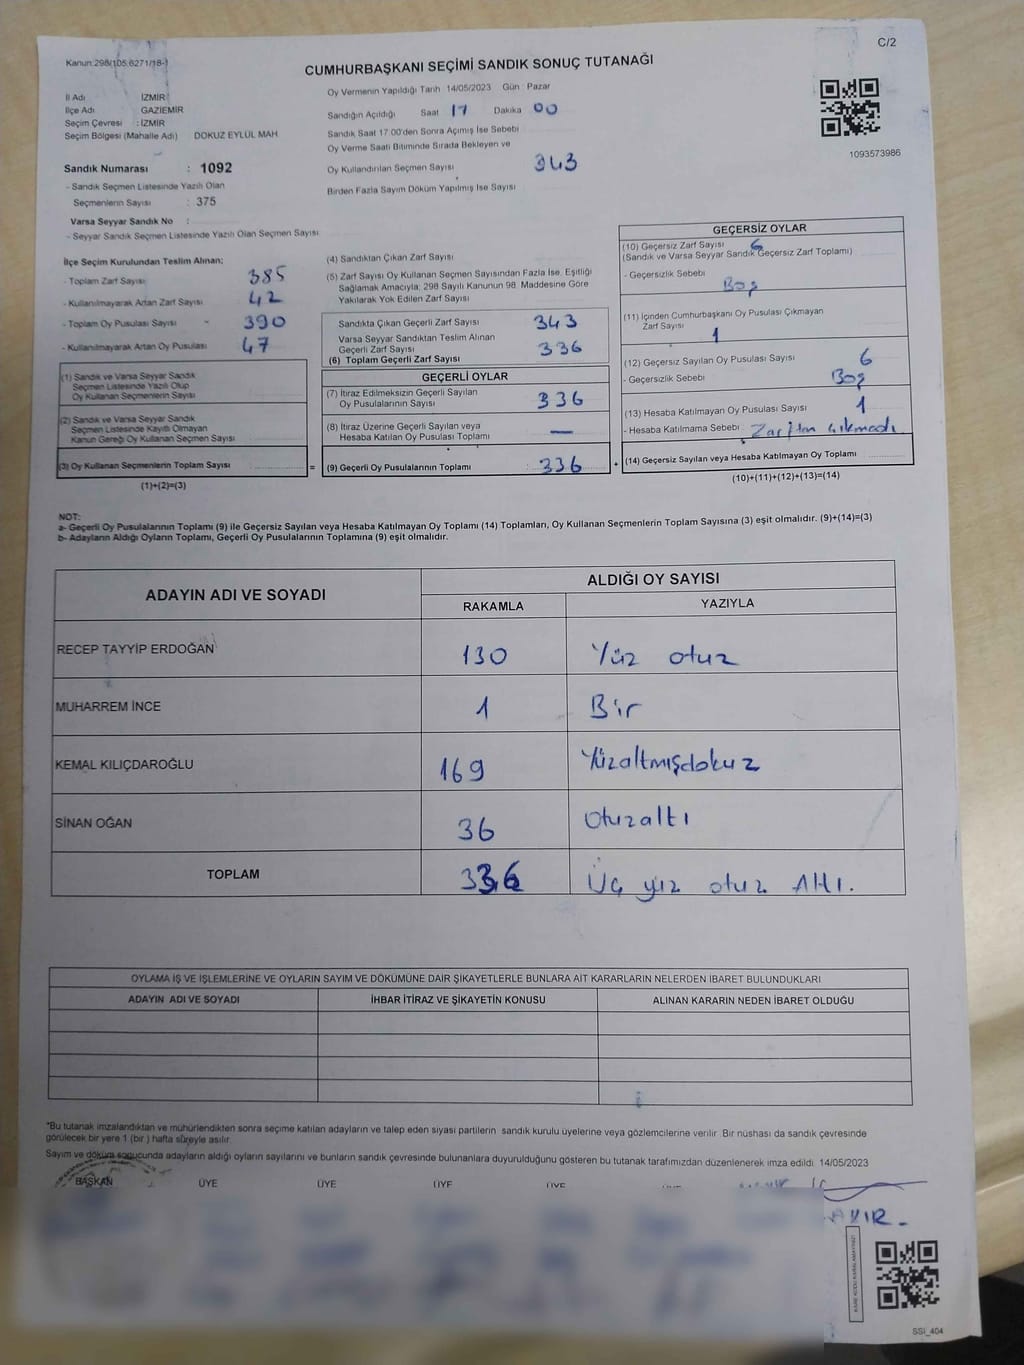 C/2
Kanun:298(105.6271/18-)
CUMHURBAŞKANI SEÇİMİ SANDIK SONUÇ TUTANAĞI
İl Adı : İZMİR
İlçe Adı GAZİEMİR
Seçim Çevresi : İZMİR
Seçim Bölgesi (Mahalle Adı) DOKUZ EYLÜL MAH
Sandık Numarası : 1092
- Sandık Seçmen Listesinde Yazılı Olan
Seçmenlerin Sayısı : 375
Varsa Seyyar Sandık No :
- Seyyar Sandık Seçmen Listesinde Yazılı Olan Seçmen Sayısı
Oy Vermenin Yapıldığı Tarih 14/05/2023 Gün : Pazar
Sandığın Açıldığı Saat 17 Dakika 00
Sandık Saat 17.00'den Sonra Açımış İse Sebebi
Oy Verme Saati Bitiminde Sırada Bekleyen ve
Oy Kullandırılan Seçmen Sayısı 343
Birden Fazla Sayım Döküm Yapılmış İse Sayısı
1093573986
İlçe Seçim Kurulundan Teslim Alınan;
- Toplam Zarf Sayısı 385
- Kullanılmayarak Artan Zarf Sayısı 42
- Toplam Oy Pusulası Sayısı 390
- Kullanılmayarak Artan Oy Pusulası 47
(1) Sandık ve Varsa Seyyar Sandık
Seçmen Listesinde Yazılı Olup
Oy Kullanan Seçmenlerin Sayısı
(2) Sandık ve Varsa Seyyar Sandık
Seçmen Listesinde Kayıtlı Olmayan
Kanun Gereği Oy Kullanan Seçmen Sayısı
(3) Oy Kullanan Seçmenlerin Toplam Sayısı =
(1)+(2)=(3)
(4) Sandıktan Çıkan Zarf Sayısı
(5) Zarf Sayısı Oy Kullanan Seçmen Sayısından Fazla İse, Eşitliği
Sağlamak Amacıyla; 298 Sayılı Kanunun 98. Maddesine Göre
Yakılarak Yok Edilen Zarf Sayısı
Sandıkta Çıkan Geçerli Zarf Sayısı 343
Varsa Seyyar Sandıktan Teslim Alınan
Geçerli Zarf Sayısı 336
(6) Toplam Geçerli Zarf Sayısı
GEÇERLİ OYLAR
(7) İtiraz Edilmeksizin Geçerli Sayılan
Oy Pusulalarının Sayısı 336
(8) İtiraz Üzerine Geçerli Sayılan veya
Hesaba Katılan Oy Pusulası Toplamı —
(9) Geçerli Oy Pusulalarının Toplamı : 336 +
GEÇERSİZ OYLAR
(10) Geçersiz Zarf Sayısı 6
(Sandık ve Varsa Seyyar Sandık Geçersiz Zarf Toplamı)
- Geçersizlik Sebebi
Boş
(11) İçinden Cumhurbaşkanı Oy Pusulası Çıkmayan
Zarf Sayısı 1
(12) Geçersiz Sayılan Oy Pusulası Sayısı 6
- Geçersizlik Sebebi Boş
(13) Hesaba Katılmayan Oy Pusulası Sayısı 1
- Hesaba Katılmama Sebebi : Zarftan çıkmadı
(14) Geçersiz Sayılan veya Hesaba Katılmayan Oy Toplamı
(10)+(11)+(12)+(13)=(14)
NOT:
a- Geçerli Oy Pusulalarının Toplamı (9) ile Geçersiz Sayılan veya Hesaba Katılmayan Oy Toplamı (14) Toplamları, Oy Kullanan Seçmenlerin Toplam Sayısına (3) eşit olmalıdır. (9)+(14)=(3)
b- Adayların Aldığı Oyların Toplamı, Geçerli Oy Pusulalarının Toplamına (9) eşit olmalıdır.
ADAYIN ADI VE SOYADI ALDIĞI OY SAYISI
RAKAMLA YAZIYLA
RECEP TAYYİP ERDOĞAN 130 Yüz otuz
MUHARREM İNCE 1 Bir
KEMAL KILIÇDAROĞLU 169 Yüzaltmışdokuz
SİNAN OĞAN 36 Otuzaltı
TOPLAM 336 Üç yüz otuz Altı.
OYLAMA İŞ VE İŞLEMLERİNE VE OYLARIN SAYIM VE DÖKÜMÜNE DAİR ŞİKAYETLERLE BUNLARA AİT KARARLARIN NELERDEN İBARET BULUNDUKLARI
ADAYIN ADI VE SOYADI İHBAR İTİRAZ VE ŞİKAYETİN KONUSU ALINAN KARARIN NEDEN İBARET OLDUĞU
*Bu tutanak imzalandıktan ve mühürlendikten sonra seçime katılan adayların ve talep eden siyasi partilerin sandık kurulu üyelerine veya gözlemcilerine verilir Bir nüshası da sandık çevresinde
görülecek bir yere 1 (bir ) hafta süreyle asılır.
Sayım ve döküm sonucunda adayların aldığı oyların sayılarını ve bunların sandık çevresinde bulunanlara duyurulduğunu gösteren bu tutanak tarafımızdan düzenlenerek imza edildi. 14/05/2023
BAŞKAN ÜYE ÜYE ÜYE ÜYE ÜYE
SSI_404